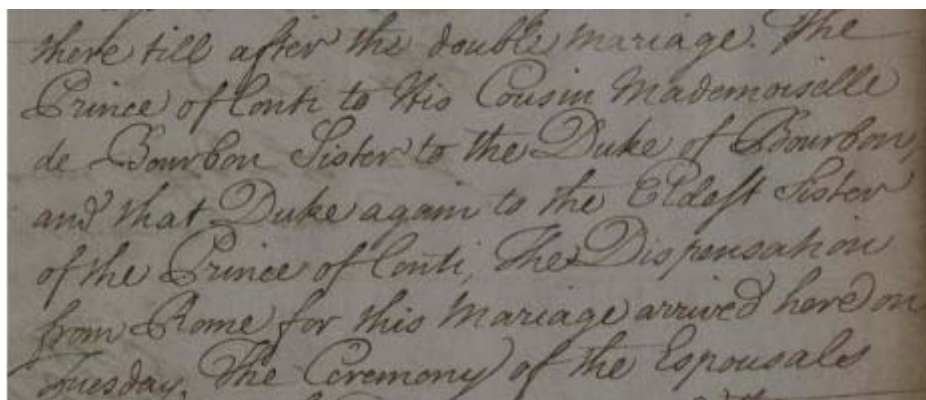 there till after the double mariage. The
Prince of Conti to His Cousin Mademoiselle
de Bourbon Sister to the Duke of Bourbon,
and that Duke again to the Eldest Sister
of the Prince of Conti, The Dispensation
from Rome for this Mariage arrived here on
Tuesday. The Ceremony of the Espousals